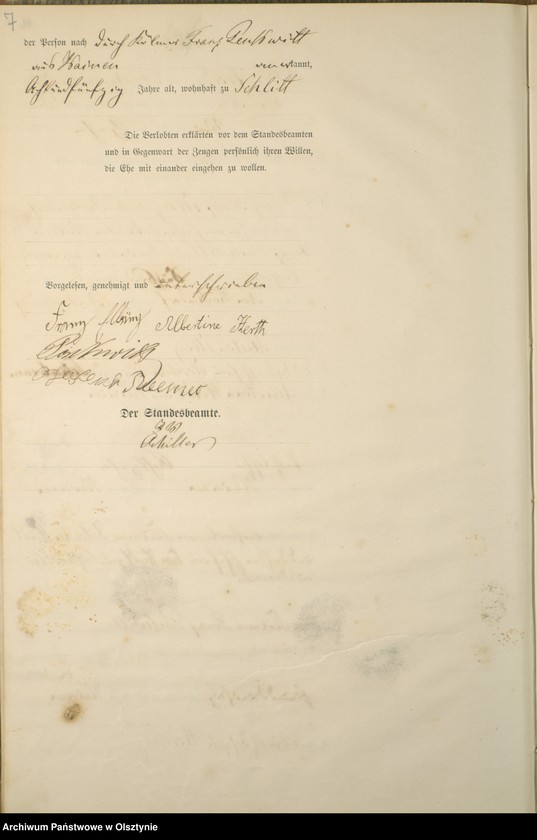 7
der Person nach durch Kölmer Franz Penkwitt
aus Wainen anerkannt,
Achtundfünfzig Jahre alt, wohnhaft zu Schlitt
Die Verlobten erklärten vor dem Standesbeamten
und in Gegenwart der Zeugen persönlich ihren Willen,
die Ehe mit einander eingehen zu wollen.
Vorgelesen, genehmigt und unterschrieben
Franz Albertine Herth
Der Standesbeamte.
Schiller
Archiwum Państwowe w Olsztynie